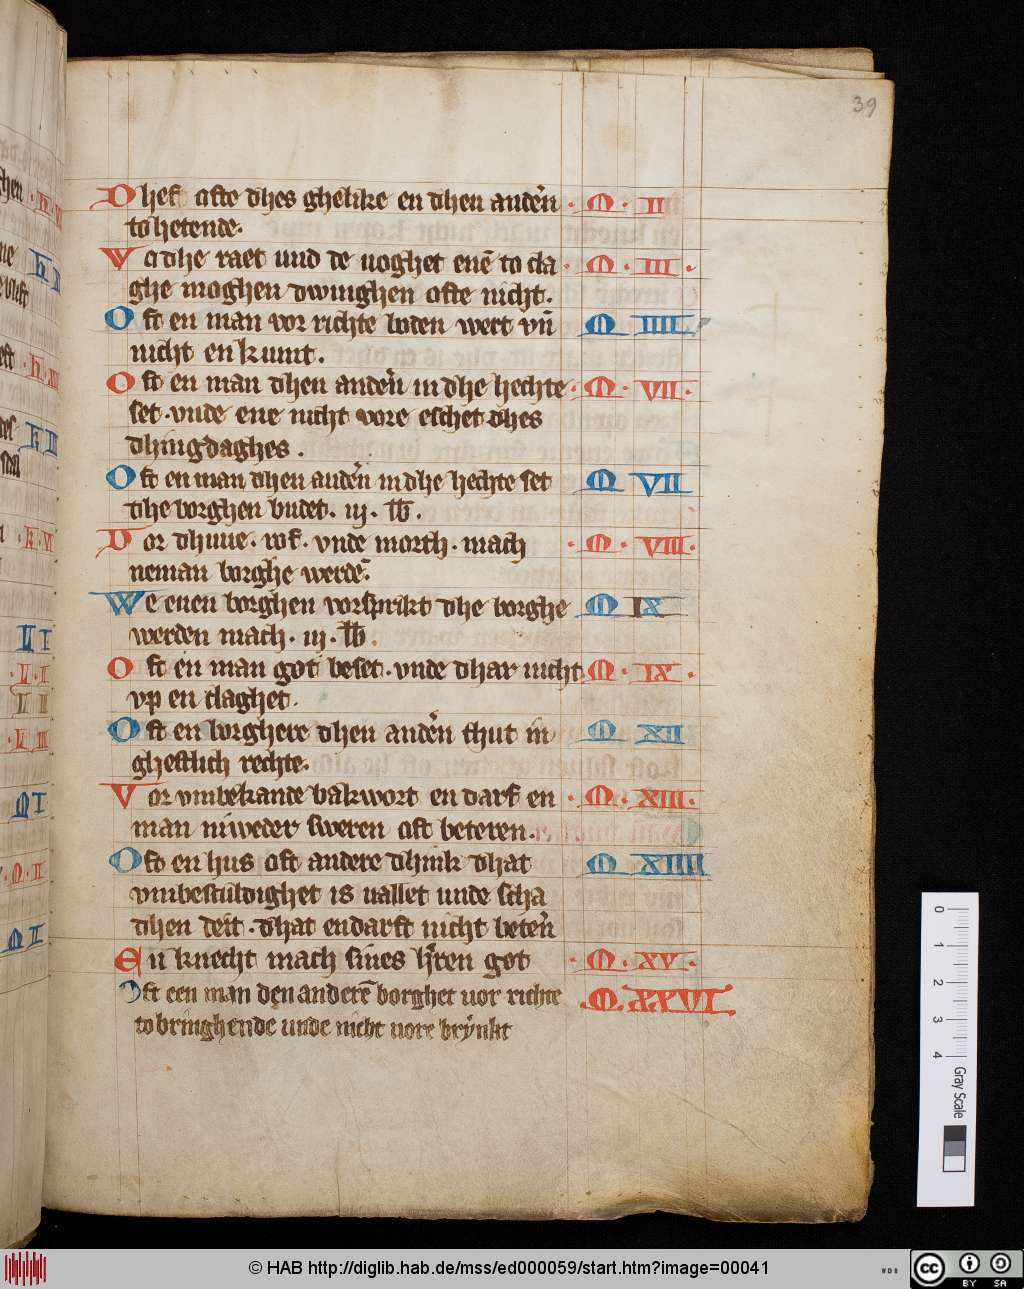 39
Dhef ofte dhes ghelike en dhen andern̄ · M · II
to hetende.
Wo dhe raet und de uoghet enē to da · M · III ·
ghe moghen dwinghen ofte nicht.
Oft en man vor richte boden wert vn̄ M IIII
nicht en kumt.
Oft en man dhen andern̄ in dhe hechte · M · VII ·
set · vnde ene nicht vore eschet dhes
dhingdaghes .
Oft en man dhen andern̄ in dhe hechte set M VII
dhe borghen budet. iij. lb̄.
Vor dhuue. rof. vnde morth. mach · M · VIII ·
neman borghe werdē.
We enen borghen vorsprikt dhe borghe M IX
werden mach. iij. lb̄.
Oft en man got beset. vnde dhar nicht M · IX ·
vp en claghet.
Oft en borghere dhen andern̄ schut in M XII
ghestlich rechte.
Vor vmbekande bakwort en darf en · M · XIII ·
man niweder sweren oft beteren.
Oft en hus oft andere dhink dhat M XIIII
vmbesculdighet is uallet unde scha
dhen deit. dhat endarft nicht betern̄
En knecht mach sines h'ren got · M · XV ·
Oft een man den anderē borghet uor richte · M · XXVI
to bringhende unde nicht uore brynkt
0 1 2 3 4 Gray Scale
© HAB http://diglib.hab.de/mss/ed000059/start.htm?image=00041
WDB
cc BY SA